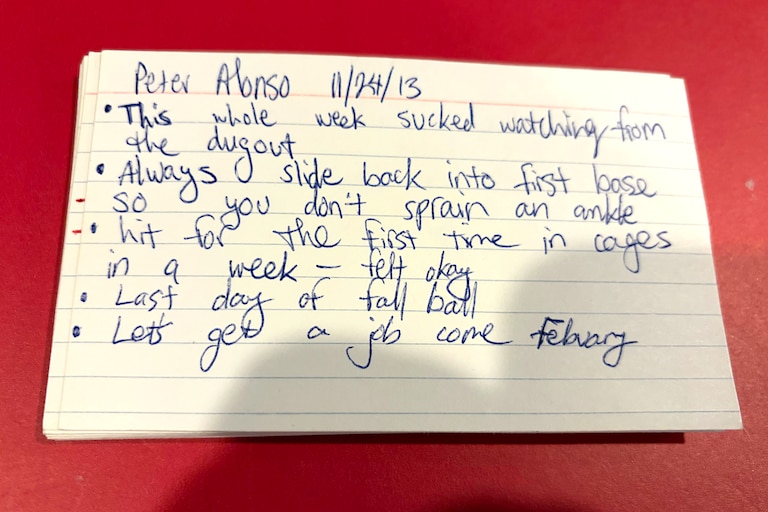 Peter Alonso 11/24/13
• This whole week sucked watching from
the dugout
• Always slide back into first base
so you don't sprain an ankle
• hit for the first time in cages
in a week – felt okay
• Last day of fall ball
• Let's get a job come Febuary